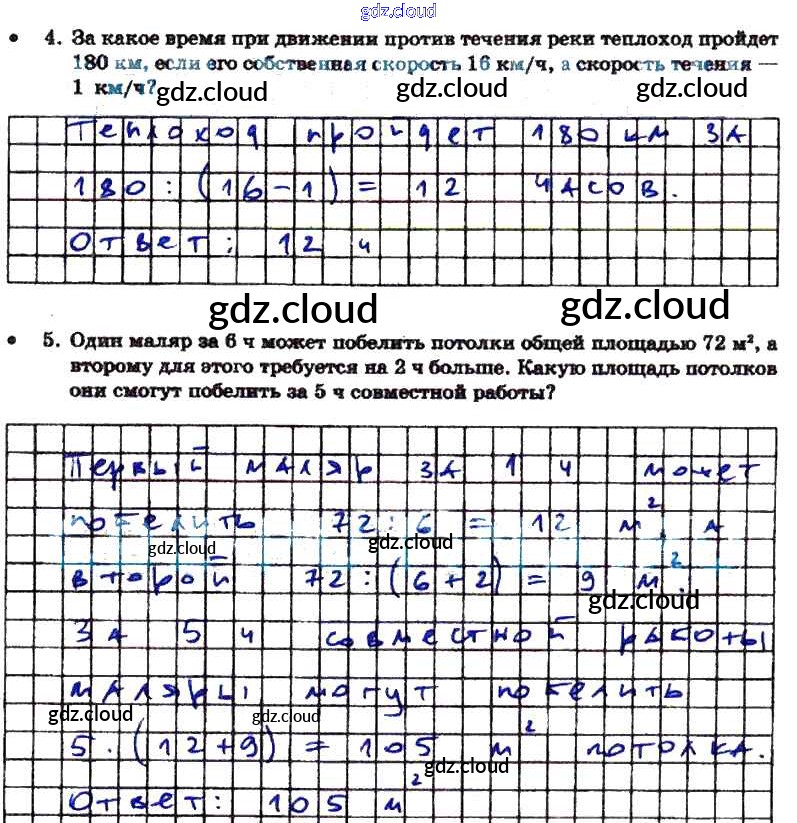 gdz.cloud
4. За какое время при движении против течения реки теплоход пройдет
180 км, если его собственная скорость 16 км/ч, а скорость течения —
1 км/ч?
gdz.cloud gdz.cloud gdz.cloud
Теплоход пройдет 180 км за
180 : (16-1) = 12 часов.
Ответ: 12 ч
gdz.cloud gdz.cloud
5. Один маляр за 6 ч может побелить потолки общей площадью 72 м², а
второму для этого требуется на 2 ч больше. Какую площадь потолков
они смогут побелить за 5 ч совместной работы?
Первый маляр за 1 ч может
побелить 72 : 6 = 12 м², а
gdz.cloud gdz.cloud
второй 72 : (6+2) = 9 м².
gdz.cloud
За 5 ч совместной работы
маляры могут побелить
gdz.cloud gdz.cloud
5 · (12+9) = 105 м² потолка.
gdz.cloud
Ответ: 105 м²